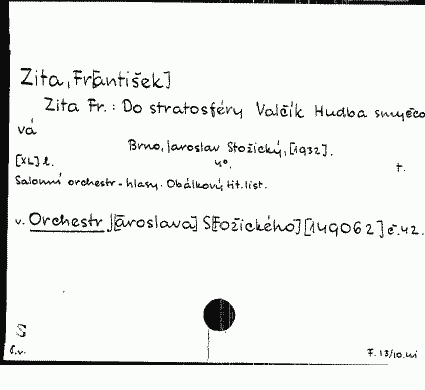 Zita, Fr[antišek]
Zita Fr.: Do stratosféry Valčík Hudba smyčco
vá
Brno, Jaroslav Stožický, [1932].
[XL] l. 4°. t.
Salonní orchestr - hlasy. Obálkový tit. list.
v. Orchestr J[aroslava] S[tožického] [149062] č. 42.
S
č.v. F. 13/10.